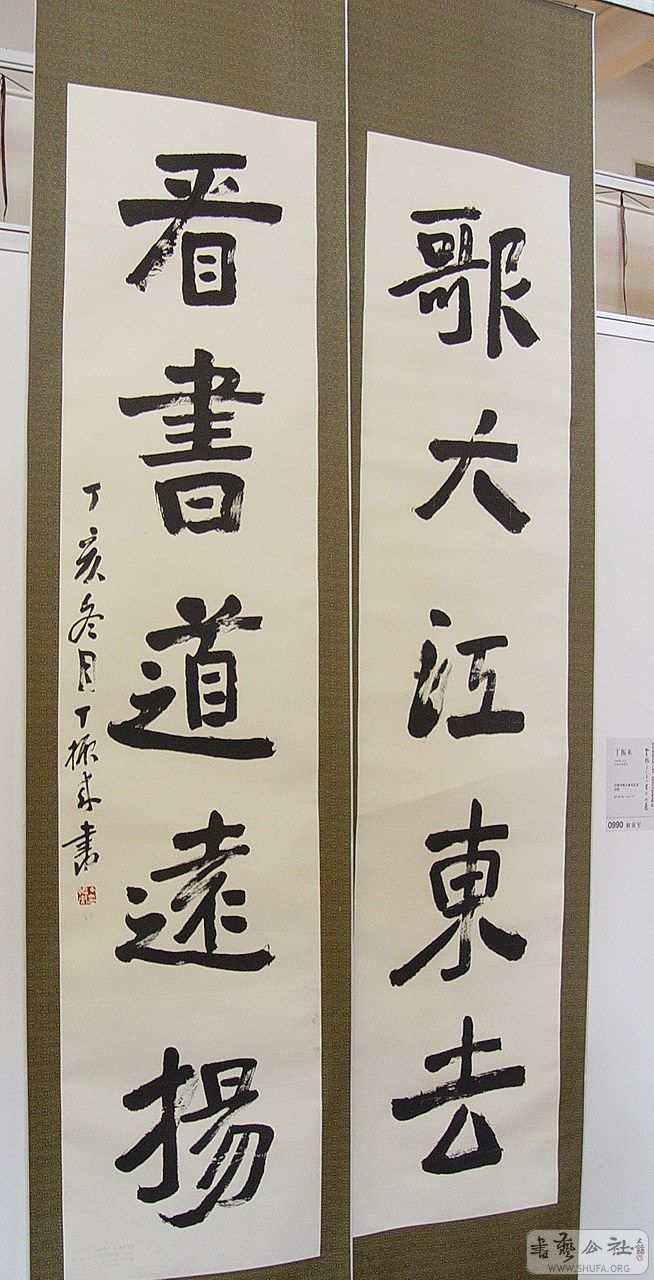 歌大江東去
看書道遠揚
丁亥冬月丁振來書
丁振來
0990 解放军
書藝公社
WWW.SHUFA.ORG